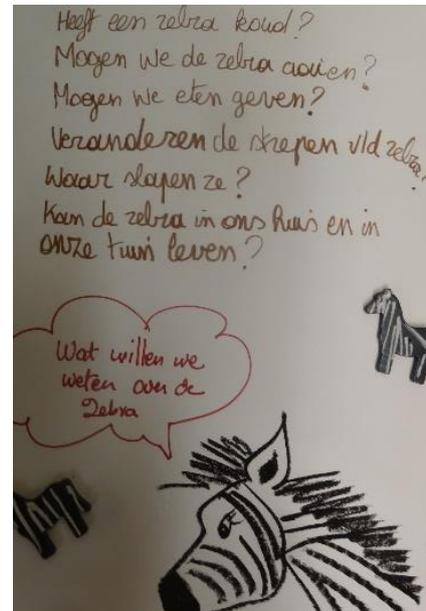 Heeft een zebra koud?
Mogen we de zebra aaien?
Mogen we eten geven?
Veranderen de strepen v/d zebra?
Waar slapen ze?
Kan de zebra in ons huis en in
onze tuin leven?
Wat willen we
weten over de
Zebra